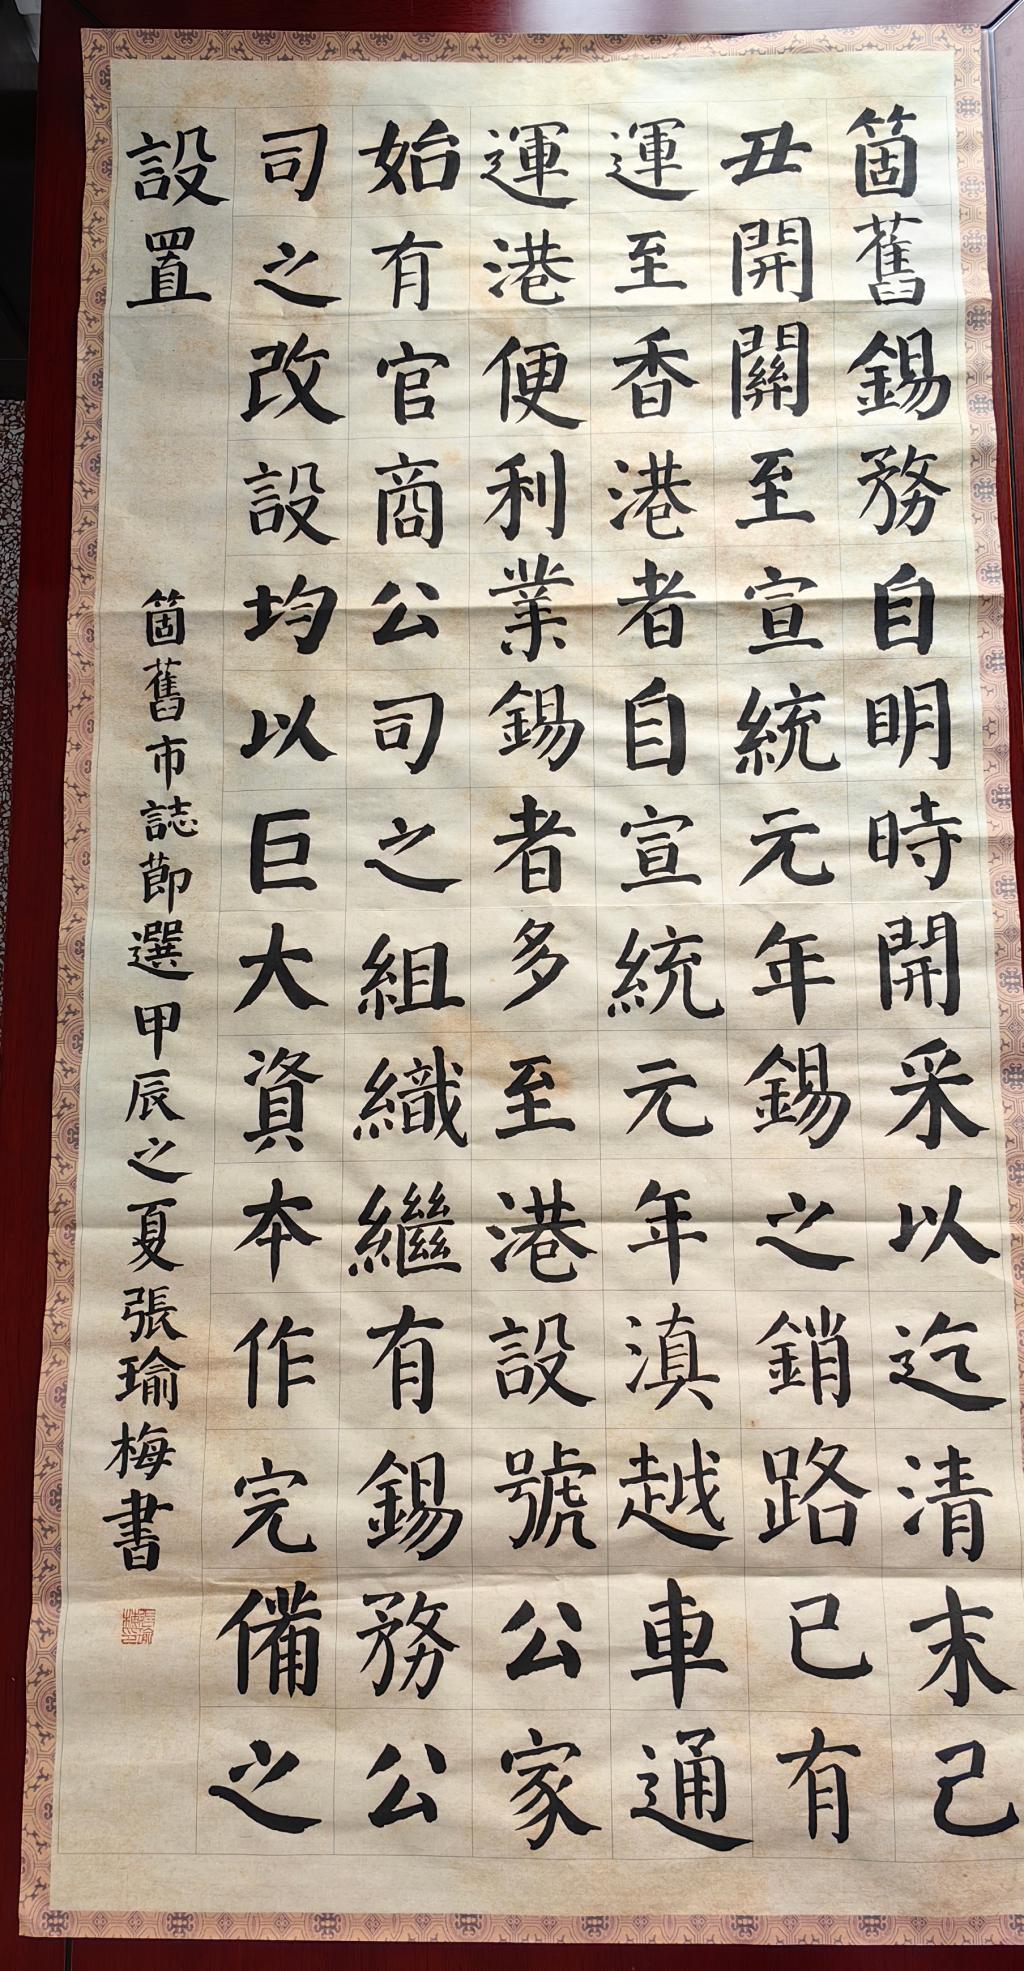 箇舊錫務自明時開采以迄清末己
丑開關至宣統元年錫之銷路已有
運至香港者自宣統元年滇越車通
運港便利業錫者多至港設號公家
始有官商公司之組織繼有錫務公
司之改設均以巨大資本作完備之
設置
箇舊市誌節選甲辰之夏張瑜梅書